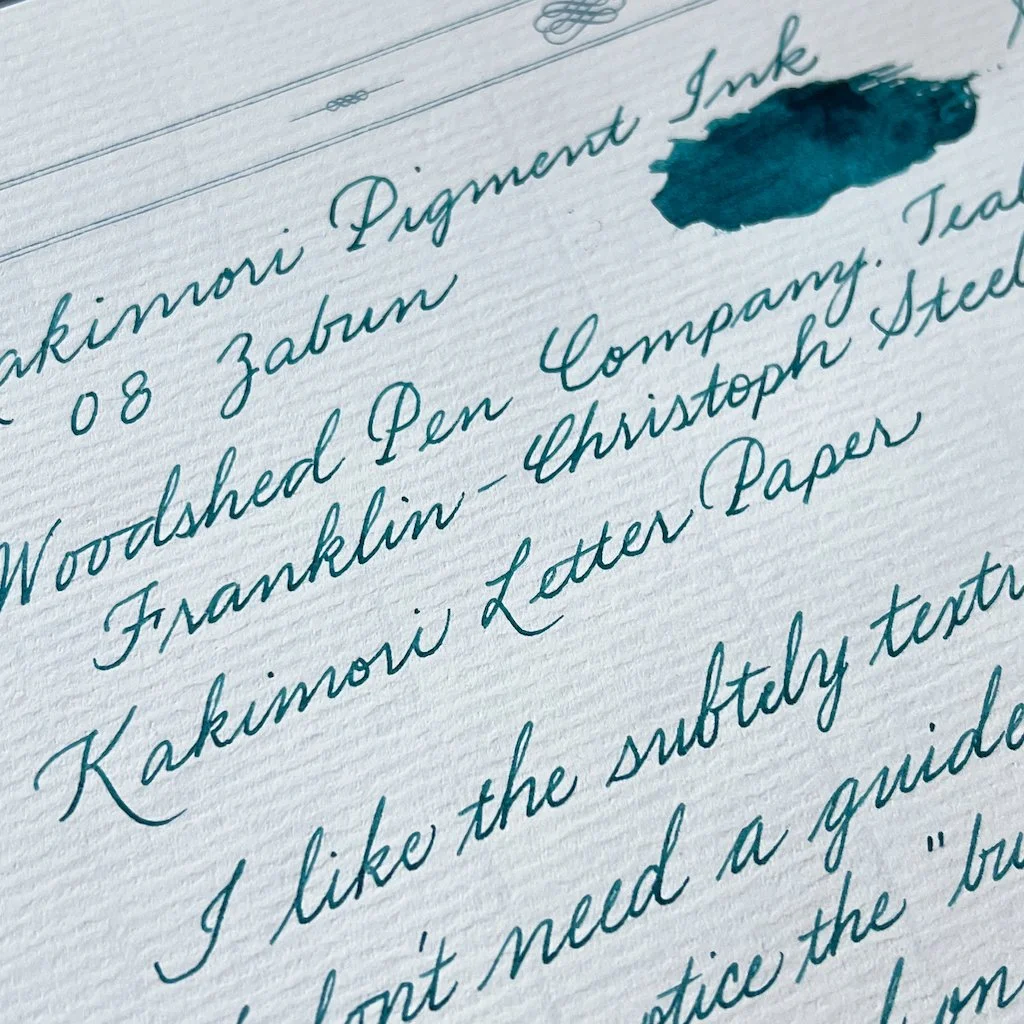 Kakimori Pigment Ink
08 Zabun
Woodshed Pen Company. Teal
Franklin-Christoph Steel
Kakimori Letter Paper
I like the subtely
need a guide
the
on